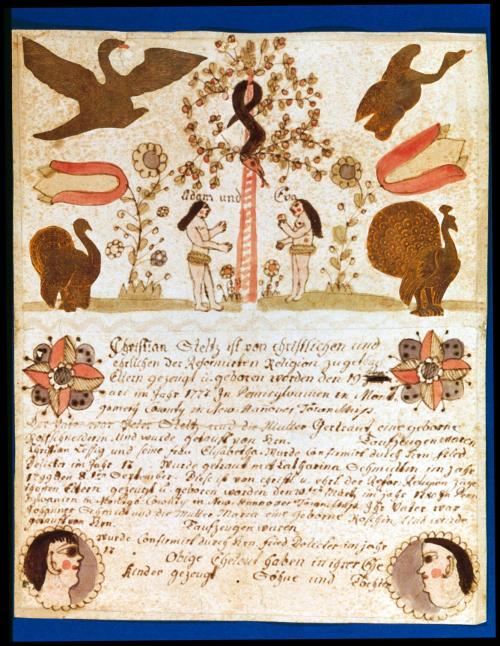 Adam und Eva
Christian Steltz ist von christlichen und
ehrlichen der Reformirten Religion zugethan
Eltern gezeugt u. geboren worden den 19
im Jahr 177 In Pennsylvanien in Mont
gomery County in New Hanover Townschip.
Der Vater war Peter Steltz und die Mutter Gertraut eine geborne
Und wurde getauft von Hrn. Taufzeugen waren
Christian Lessig und seine frau Elisabetha. Wurde Confirmirt durch Hrn. fried.
im Jahr 17 Wurde getraut mit Catharina Schmidten im Jahr
1799 den 8ten September. Diese ist von christl. u. ehrl. der Refor. Religion zuge
thanen Eltern gezeugt u. geboren worden den März im jahr 1780 In Pen
sylvanien in County in New Hannover Taunschip. Ihr Vater war
Johannes Schmid und die Mutter Maria eine geborne Und wurde
getauft von Hrn. Taufzeugen waren
wurde Confirmirt durch Hrn. fried. im jahr
17
Obige Eheleut haben in ihrer Ehe
Kinder gezeugt Söhne und Töchter